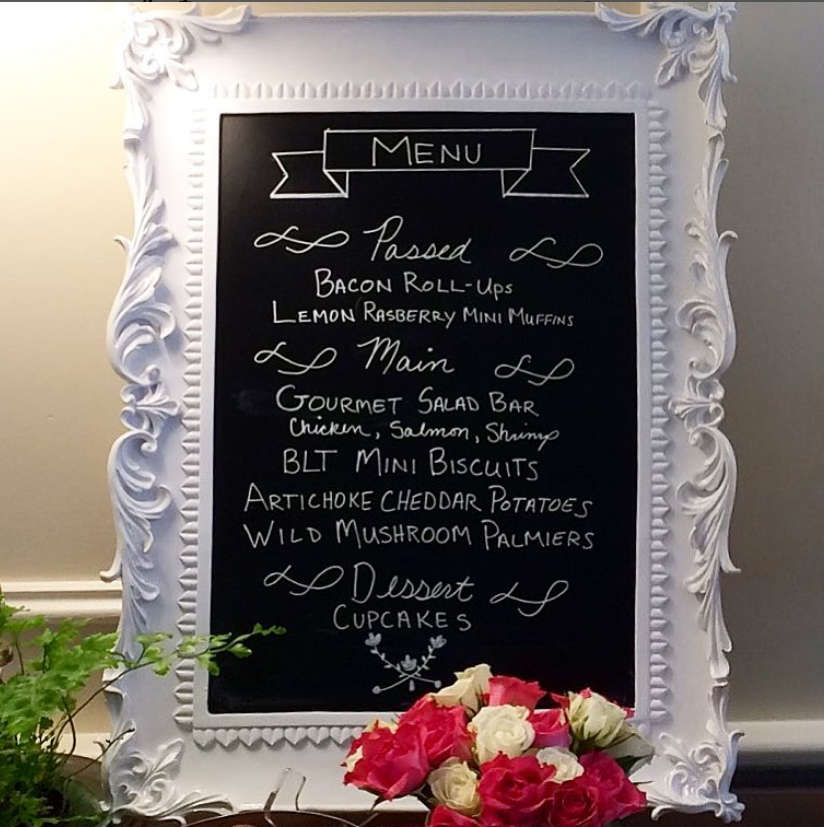 MENU
Passed
BACON ROLL-UPS
LEMON RASBERRY MINI MUFFINS
Main
GOURMET SALAD BAR
Chicken, Salmon, Shrimp
BLT MINI BISCUITS
ARTICHOKE CHEDDAR POTATOES
WILD MUSHROOM PALMIERS
Dessert
CUPCAKES